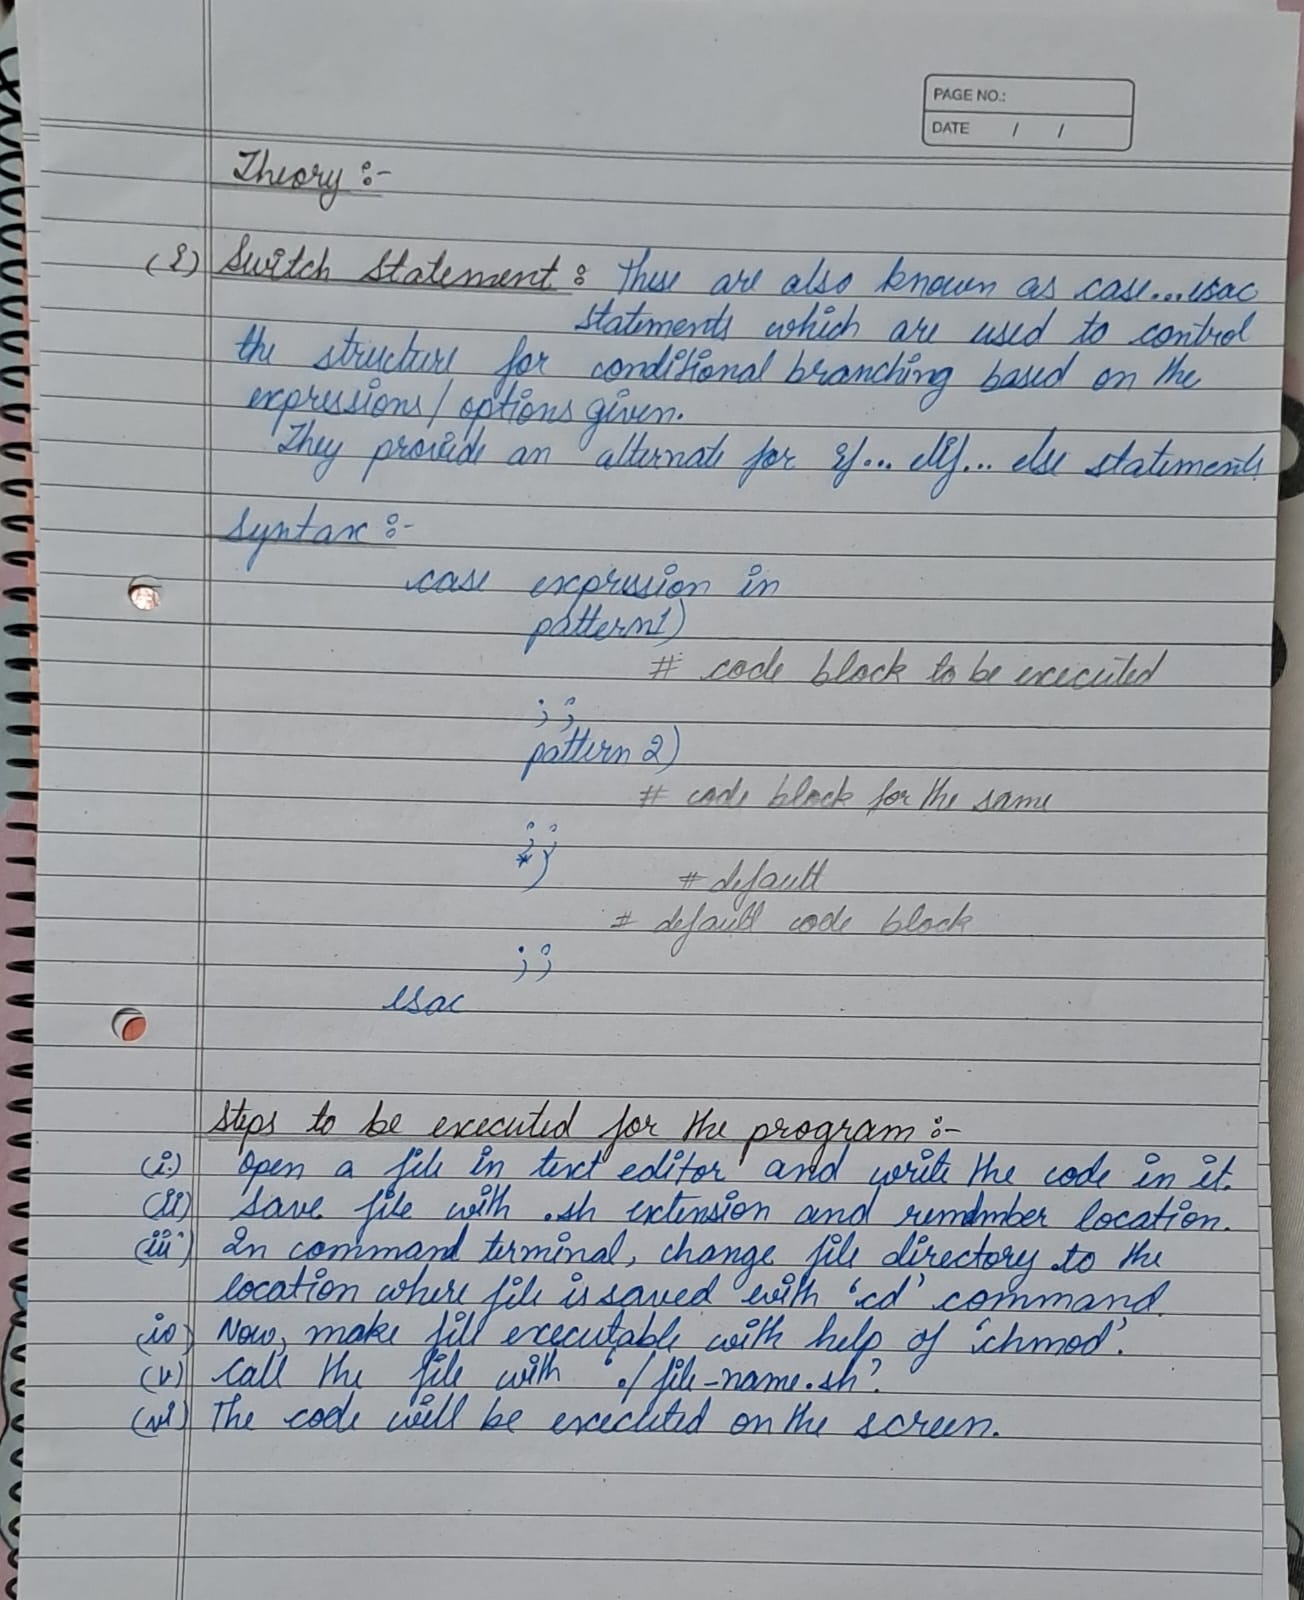 PAGE NO.:
DATE / /
Theory :-
(i) Switch Statement : These are also known as case...esac
statements which are used to control
the structure for conditional branching based on the
expressions/options given.
They provide an alternate for if... elif... else statements
Syntax :-
case expression in
pattern1)
# code block to be executed
;;
pattern 2)
# code block for the same
;;
*) # default
# default code block
;;
esac
Steps to be executed for the program :-
(i) Open a file in text editor and write the code in it.
(ii) Save file with .sh extension and remdmber location.
(iii) In command terminal, change file directory to the
location where file is saved with 'cd' command.
(iv) Now, make file executable with help of 'chmod'.
(v) Call the file with './file-name.sh'.
(vi) The code will be executed on the screen.